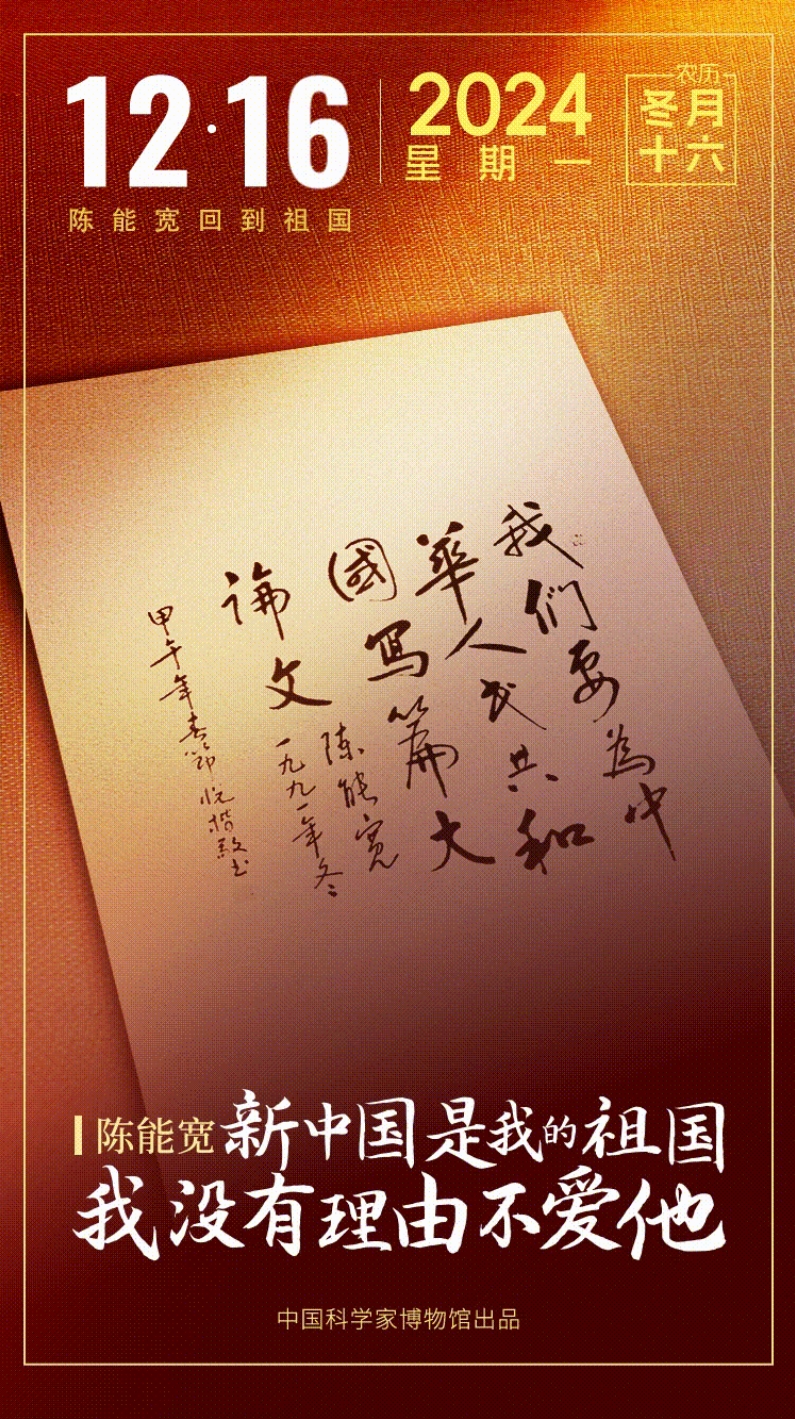 12·16
2024
星期一
农历
冬月
十六
陈能宽回到祖国
我们要為中
華人民共和
國寫篇大
論文
陈能宽
一九九一年冬
甲午年春節
陈能宽 新中国是我的祖国
我没有理由不爱他
中国科学家博物馆出品